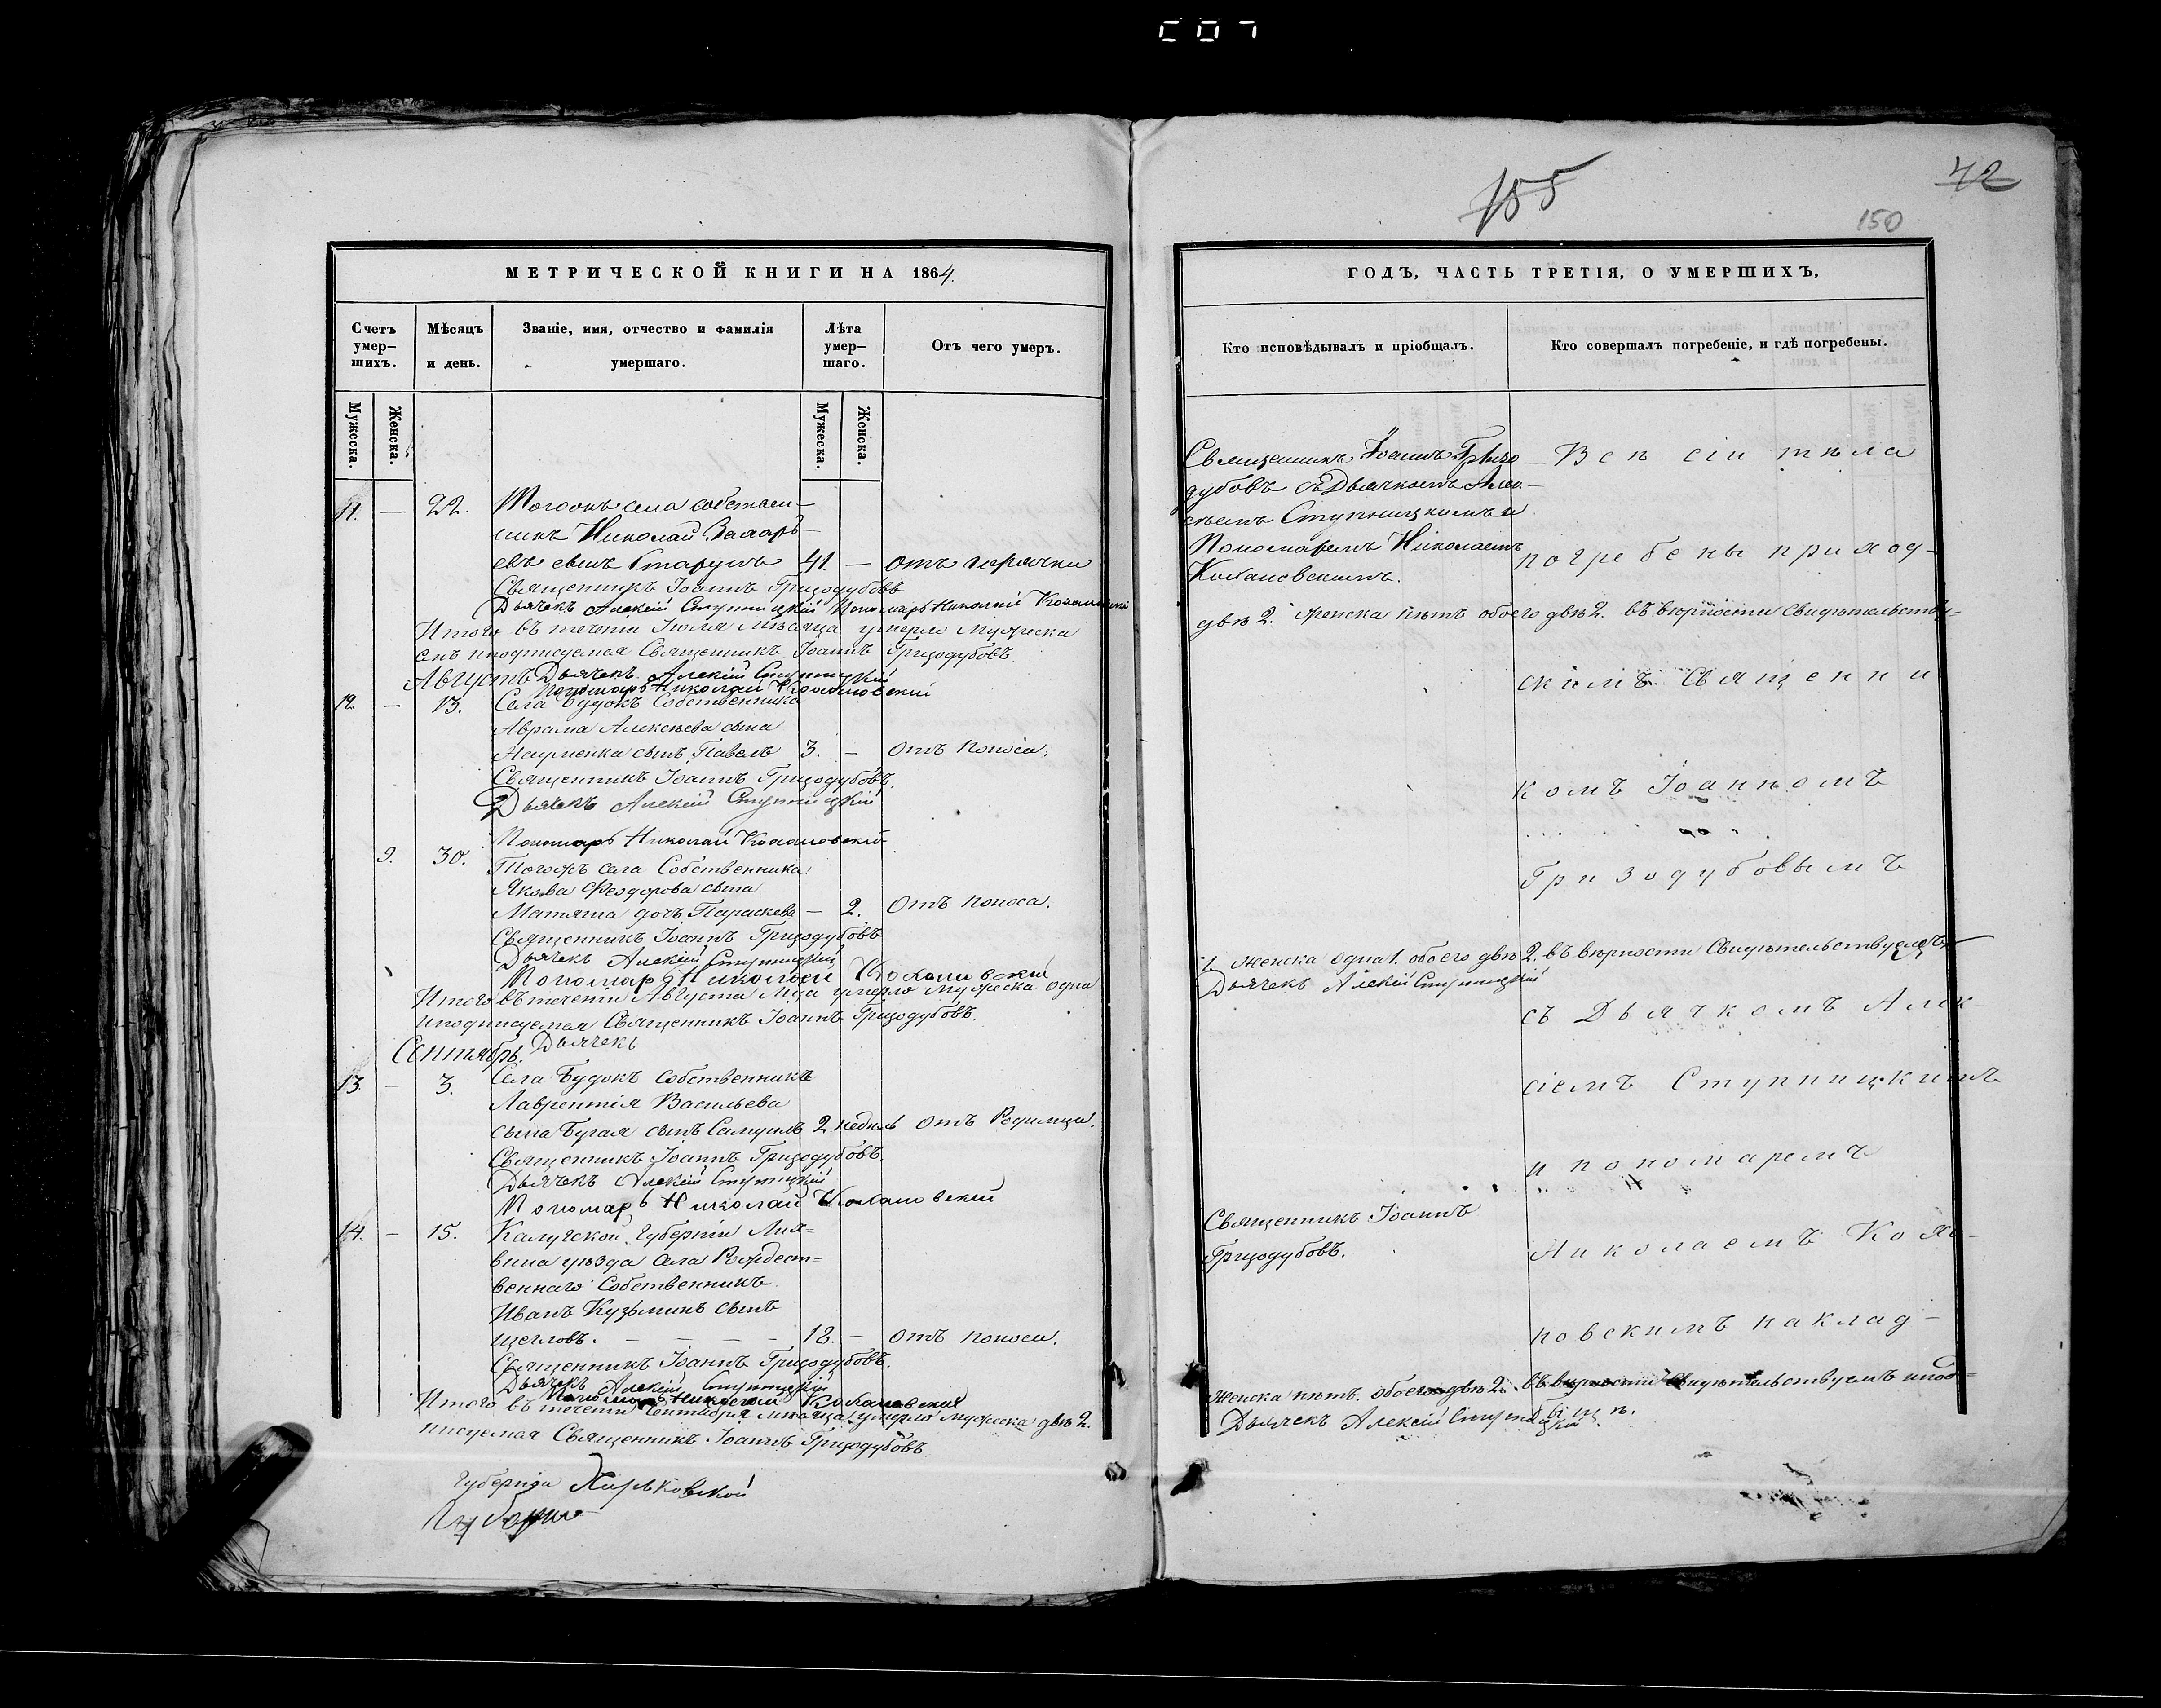 155
42
150
МЕТРИЧЕСКОЙ КНИГИ НА 1864.
Счетъ умер-шихъ.
Мѣсяцъ и день.
Званіе, имя, отчество и фамилія умершаго.
Лѣта умер-шаго.
Отъ чего умеръ.
Мужеска.
Женска.
Мужеска.
Женска.
11. — 22. Тогожъ села собствен-
никъ Николай
сынъ 41. — отъ горячки
Священникъ Іоаннъ Гризодубовъ
Дьячекъ Алексій Ступницкій Пономарь Николай
Итого въ теченіи Іюля мѣсяца умерло мужеска
Священникъ Іоаннъ Гризодубовъ
Августъ Дьячекъ Алексій Ступницкій
Пономарь Николай Кохановскій
12. — 13. Села Будокъ Собственника
Аврама Алексѣева сына
Науменка сынъ Павелъ 3. — Отъ поноса.
Священникъ Іоаннъ Гризодубовъ.
Дьячекъ Алексій Ступницкій
Пономарь Николай Кохановскій
9. 30. Тогожъ села Собственника
Якова Феодорова сына
дочь Параскева — 2. Отъ поноса.
Священникъ Іоаннъ Гризодубовъ
Дьячекъ Алексій Ступницкій
Пономарь Николай Кохановскій
Итого въ теченіи Августа м҃ца умерло мужеска одна
иподписуемся Священникъ Іоаннъ Гризодубовъ.
Сентябрь. Дьячекъ
13. — 3. Села Будокъ Собственникъ
Лаврентія Васильева
сына Бугая сынъ Самуилъ 2 недѣль отъ Родимца.
Священникъ Іоаннъ Гризодубовъ.
Дьячекъ Алексій Ступницкій
Пономарь Николай Кохановскій
14. — 15. Калужской Губерніи Лих=
вина уѣзда села Рождест=
веннаго Собственникъ
Иванъ Кузьминъ сынъ
Щегловъ. — — — — 18. — отъ поноса.
Священникъ Іоаннъ Гризодубовъ.
Дьячекъ Алексій Ступницкій
Пономарь Николай Кохановскій
Итого въ теченіи Сентября мѣсяца умерло мужеска двѣ 2.
писуемся Священникъ Іоаннъ Гризодубовъ
Губерніи Харьковской
ГОДЪ, ЧАСТЬ ТРЕТІЯ, О УМЕРШИХЪ,
Кто исповѣдывалъ и пріобщалъ.
Кто совершалъ погребеніе, и гдѣ погребены.
Священникъ Іоаннъ Гризо-
дубовъ съ Дьячкомъ Але-
ксѣемъ Ступницкимъ и
Пономаремъ Николаемъ
Кохановскимъ.
двѣ 2. женска нѣтъ обоего двѣ 2. въ вѣрности свидѣтельству-
1. женска одна 1. обоего двѣ 2. въ вѣрности Свидѣтельствуемъ
Дьячекъ Алексій Ступницкій
Священникъ Іоаннъ
Гризодубовъ.
женска нѣтъ. обоего двѣ 2. въ вѣрности свидѣтельствуемъ ипод=
Дьячекъ Алексій Ступницкій
Всѣ сіи тѣла
погребены приход-
скимъ Священни
комъ Іоанномъ
Гризодубовымъ
съ Дьячкомъ Алек
сіемъ Ступницкимъ
и пономаремъ
Николаемъ Коха-
новскимъ наклад-
бищѣ.